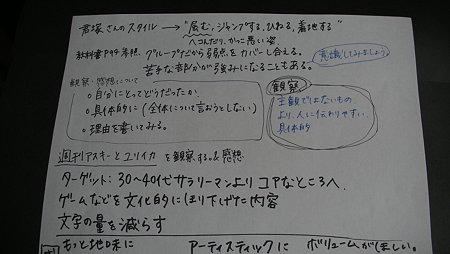 君塚さんのスタイル → "屈む、ジャンプする、ひねる、着地する"
ヘコんだり、かっこ悪い姿
教科書P94参照 グループだから弱点をカバーし合える。
苦手な部分が強みになることもある。
意識してみましょう
観察・感想について
○自分にとってどうだったか
○具体的に(全体について言おうとしない)
○理由を書いてみる。
観察
主観ではないもの
より、人に伝わりやすい
具体的
週刊アスキーとユリイカを観察する。&感想
ターゲット:30~40代サラリーマンよりコアなところへ
ゲームなどを文化的にほり下げた内容
文字の量を減らす
もっと地味に アーティスティックに ボリュームがほしい。